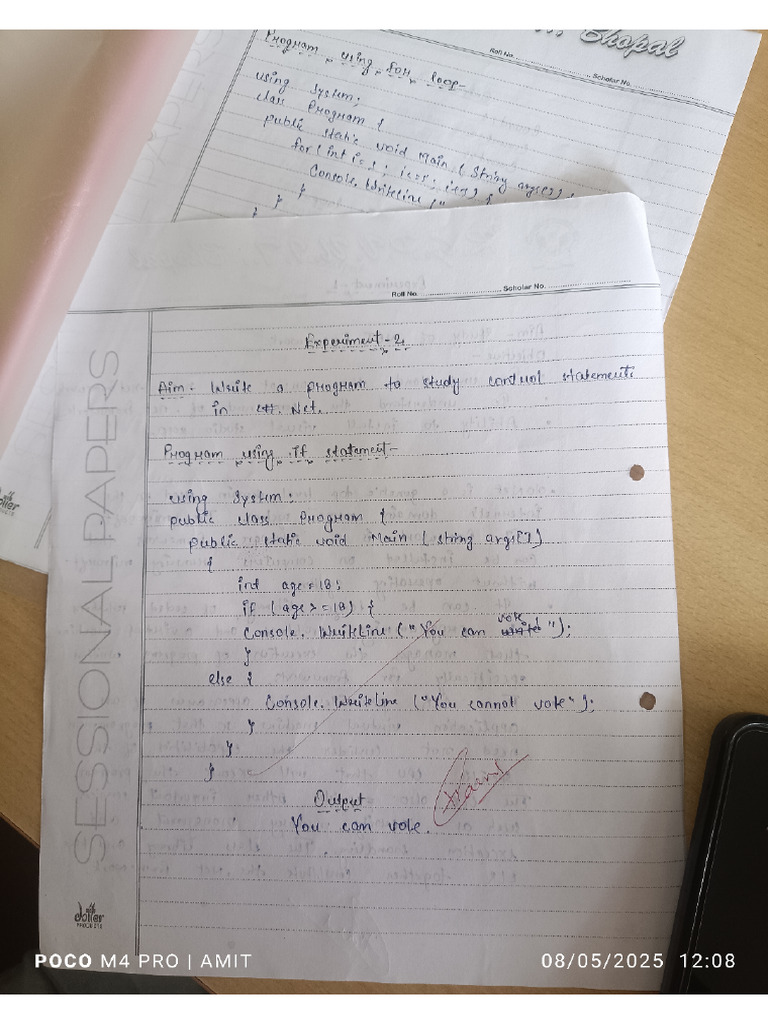 Bhopal
Roll No. Scholar No.
Program using for loop-
using System;
class Program {
public static void Main (String args[]) {
for (int i=1; i<=5; i++) {
Console. WriteLine ("
}
}
}
Roll No. Scholar No.
Experiment-2
Aim- Write a program to study control statements
in C#. Net.
Program using If statement-
using System;
public class Program {
public static void Main (string args[])
{
int age = 18;
if (age >= 18) {
Console. WriteLine ("You can vote");
}
else {
Console. WriteLine ("You cannot vote");
}
}
}
Output
You can vote.
SESSIONAL PAPERS
PAPERS
doller
PRODUCTS
POCO M4 PRO | AMIT
08/05/2025 12:08